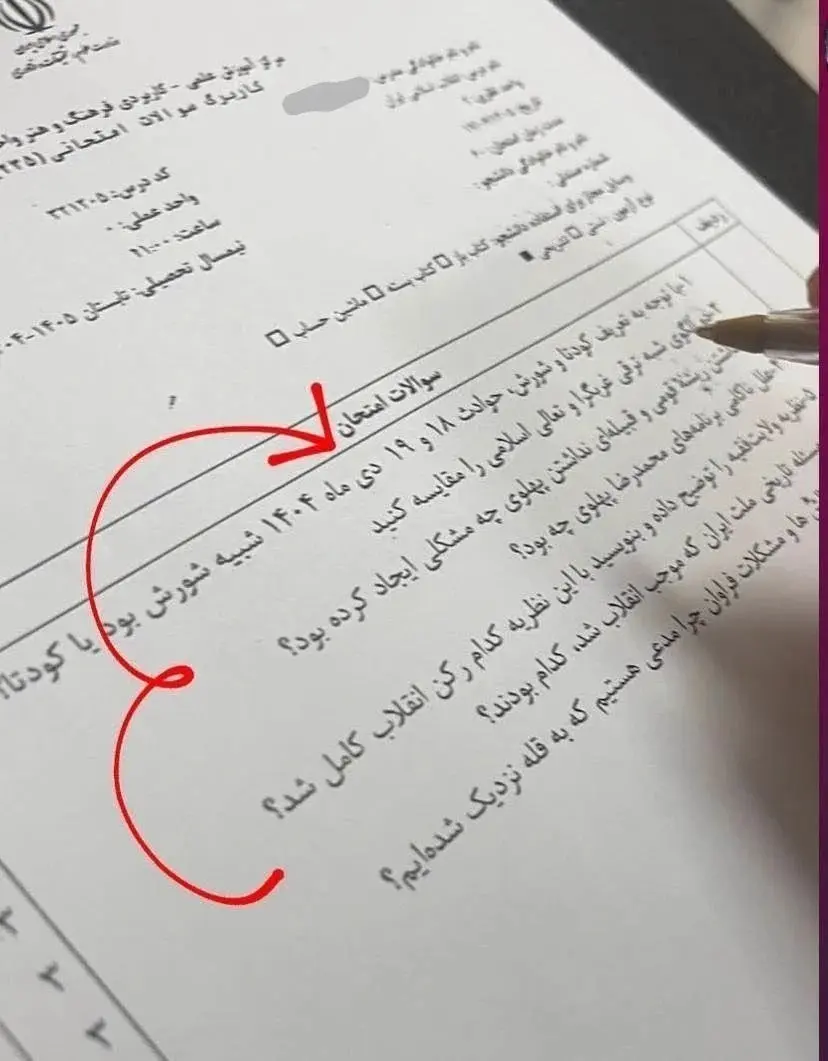 مرکز آموزش علمی - کاربردی فرهنگ و هنر واحد
کاربرگ سوالات امتحانی (۲۳۵
کد درس: ۲۲۱۲۰۵
واحد عملی: ۰
ساعت: ۲۱:۰۰
نیمسال تحصیلی: تابستان ۱۴۰۵-۱۴۰۴
نام و نام خانوادگی مدرس:
نام درس: انقلاب اسلامی ایران
واحد نظری: ۲
مدت زمان امتحان: ۶۰
نام و نام خانوادگی دانشجو:
شماره صندلی:
وسایل مجاز برای استفاده دانشجو: کتاب باز □ کتاب بسته □ ماشین حساب □
نوع آزمون: تستی □ تشریحی ■
ردیف
سوالات امتحان
۱.با توجه به تعریف کودتا و شورش، حوادث ۱۸ و ۱۹ دی ماه ۱۴۰۴ شبیه شورش بود یا کودتا؟
الگوی شبه ترقی غربگرا و تعالی اسلامی را مقایسه کنید
ریشه قومی و قبیله‌ای نداشتن پهلوی چه مشکلی ایجاد کرده بود؟
علل ناکامی برنامه‌های محمدرضا پهلوی چه بود؟
نظریه ولایت‌فقیه را توضیح داده و بنویسید با این نظریه کدام رکن انقلاب کامل شد؟
تاریخی ملت ایران که موجب انقلاب شد، کدام بودند؟
ها و مشکلات فراوان چرا مدعی هستیم که به قله نزدیک شده‌ایم؟
۲
۲
۲